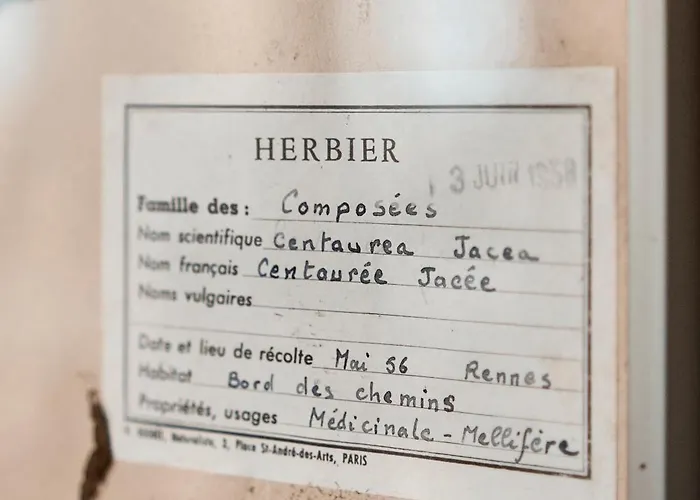 HERBIER
3 JUIN 1958
Famille des : Composées
Nom scientifique Centaurea Jacea
Nom français Centaurée Jacée
Noms vulgaires
Date et lieu de récolte Mai 56 Rennes
Habitat Bord des chemins
Propriétés, usages Médicinale - Mellifère
Naturaliste, 2, Place St-André-des-Arts, PARIS